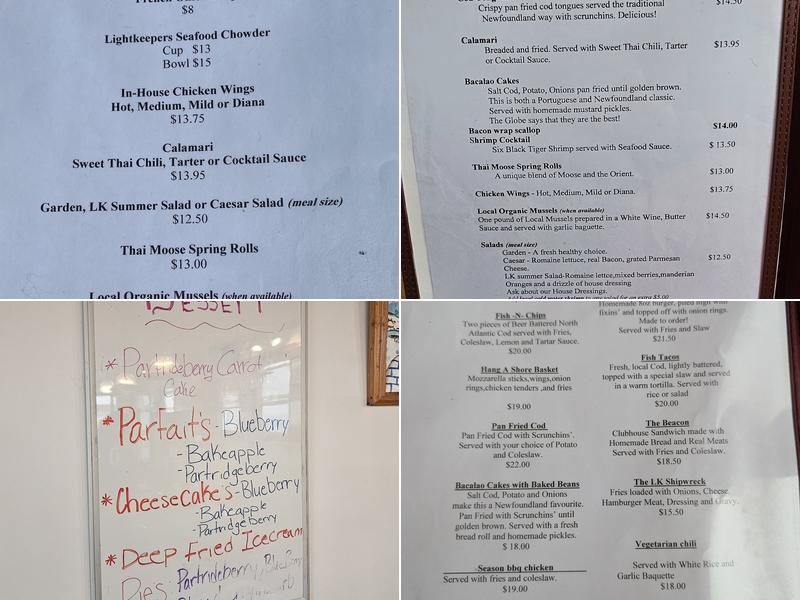 French Onion Soup
$8
Lightkeepers Seafood Chowder
Cup $13
Bowl $15
In-House Chicken Wings
Hot, Medium, Mild or Diana
$13.75
Calamari
Sweet Thai Chili, Tarter or Cocktail Sauce
$13.95
Garden, LK Summer Salad or Caesar Salad (meal size)
$12.50
Thai Moose Spring Rolls
$13.00
Local Organic Mussels (when available)
$14.50
Crispy pan fried cod tongues served the traditional
Newfoundland way with scrunchins. Delicious!
Calamari
Breaded and fried. Served with Sweet Thai Chili, Tarter
$13.95
or Cocktail Sauce.
Bacalao Cakes
Salt Cod, Potato, Onions pan fried until golden brown.
This is both a Portuguese and Newfoundland classic.
Served with homemade mustard pickles.
The Globe says that they are the best!
Bacon wrap scallop
$14.00
Shrimp Cocktail
Six Black Tiger Shrimp served with Seafood Sauce.
$ 13.50
Thai Moose Spring Rolls
$13.00
A unique blend of Moose and the Orient.
Chicken Wings - Hot, Medium, Mild or Diana.
$13.75
Local Organic Mussels (when available)
One pound of Local Mussels prepared in a White Wine, Butter
$14.50
Sauce and served with garlic baguette.
Salads (meal size)
Garden - A fresh healthy choice.
Caesar - Romaine lettuce, real Bacon, grated Parmesan
$12.50
Cheese.
LK summer Salad-Romaine lettce,mixed berries,manderian
Oranges and a drizzle of house dressing
Ask about our House Dressings.
Add local cold water shrimp to any salad for an extra $5.00
DESSERT
* Partrideberry Carrot
Cake
* Parfait's - Blueberry
- Bakeapple
- Partridgeberry
* Cheesecake's - Blueberry
- Bakeapple
- Partridgeberry
* Deep Fried Icecream
Pie's Partrideberry, BlueBerry
Fish -N- Chips
Two pieces of Beer Battered North
Atlantic Cod served with Fries,
Coleslaw, Lemon and Tartar Sauce.
$20.00
Hang A Shore Basket
Mozzarella sticks,wings,onion
rings,chicken tenders ,and fries
$19.00
Pan Fried Cod
Pan Fried Cod with Scrunchins'.
Served with your choice of Potato
and Coleslaw.
$22.00
Bacalao Cakes with Baked Beans
Salt Cod, Potato and Onions
make this a Newfoundland favourite.
Pan Fried with Scrunchins' until
golden brown. Served with a fresh
bread roll and homemade pickles.
$ 18.00
-Season bbq chicken
Served with fries and coleslaw.
$19.00
Homemade 8oz burger, piled high with
fixins' and topped off with onion rings.
Made to order!
Served with Fries and Slaw
$21.50
Fish Tacos
Fresh, local Cod, lightly battered,
topped with a special slaw and served
in a warm tortilla. Served with
rice or salad
$20.00
The Beacon
Clubhouse Sandwich made with
Homemade Bread and Real Meats
Served with Fries and Coleslaw.
$18.50
The LK Shipwreck
Fries loaded with Onions, Cheese,
Hamburger Meat, Dressing and Gravy.
$15.50
Vegetarian chili
Served with White Rice and
Garlic Baquette
$18.00